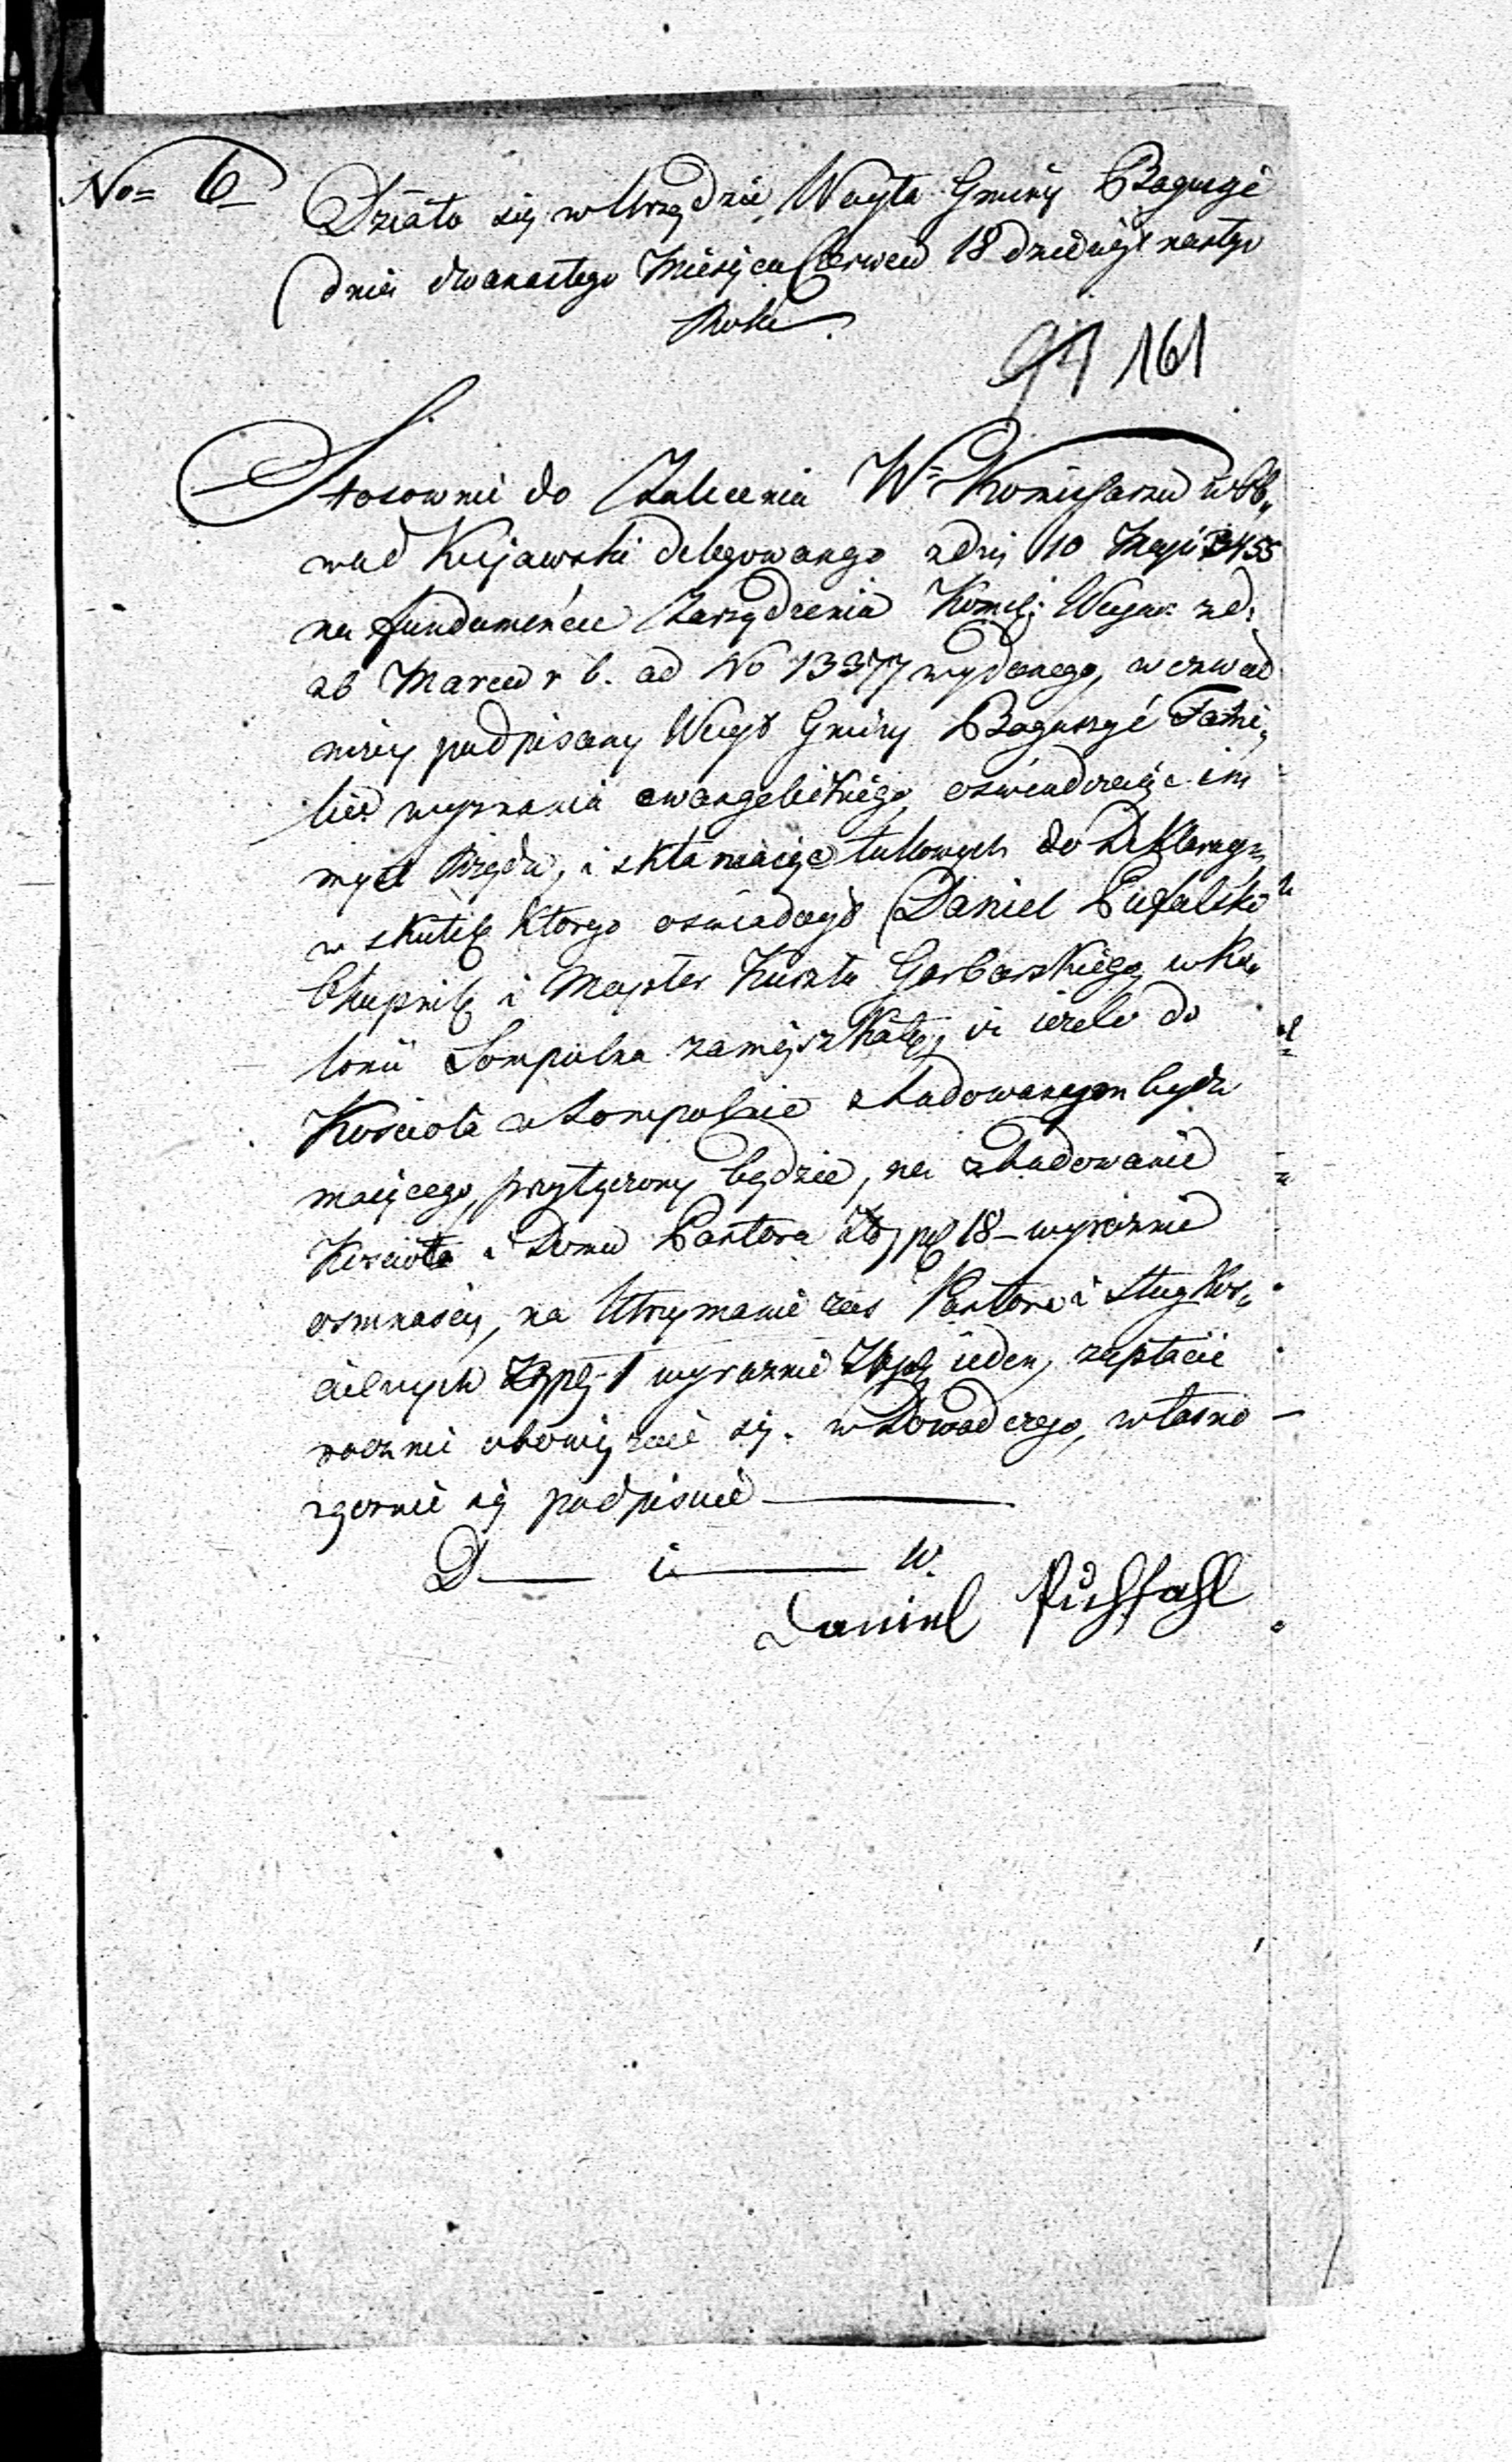 No = 6
Działo się w Urzędzie Woyta Gminy Boguszyc
dnia dwunastego Miesiąca Czerwca 18 dziewiętnastego
Roku.
97 161
Stosownie do Zalecenia W= Kommissarza w Ob„
wod Kujawski delegowanego z dnia 10 Maja 3455
na fundamencie Zarządzenia Komiss: Woyew: z d:
26 Marca r b. ad No 13377 wydanego, wezwał
niżej podpisany Woyt Gminy Boguszyc Fami„
lie wyznania ewangelickiego, oświadczając im
myśl Rządu, i skłaniając takowych do Deklaracyi,
w skutek ktorego oświadczył Daniel Pufalski
Chupnik i Mayster Kusztu Garbarskiego, w Ko„
lonii Sompolna zamieszkały, iż ieżeli do
Kościoła w Sompolnie zbudowanym bydź
maiącego, przyłączony będzie, na zbudowanie
Kościoła i Domu Pastora Złp 18 – wyraźnie
osmnaście, na Utrzymanie zaś Pastora i Sług Koś„
cielnych Złp 1 wyraźnie Złp ieden, zapłacić
rocznie obowięzuie się. w Dowod czego, własno
ręcznie się podpisuie
D — i — w.
Daniel Püchfahl